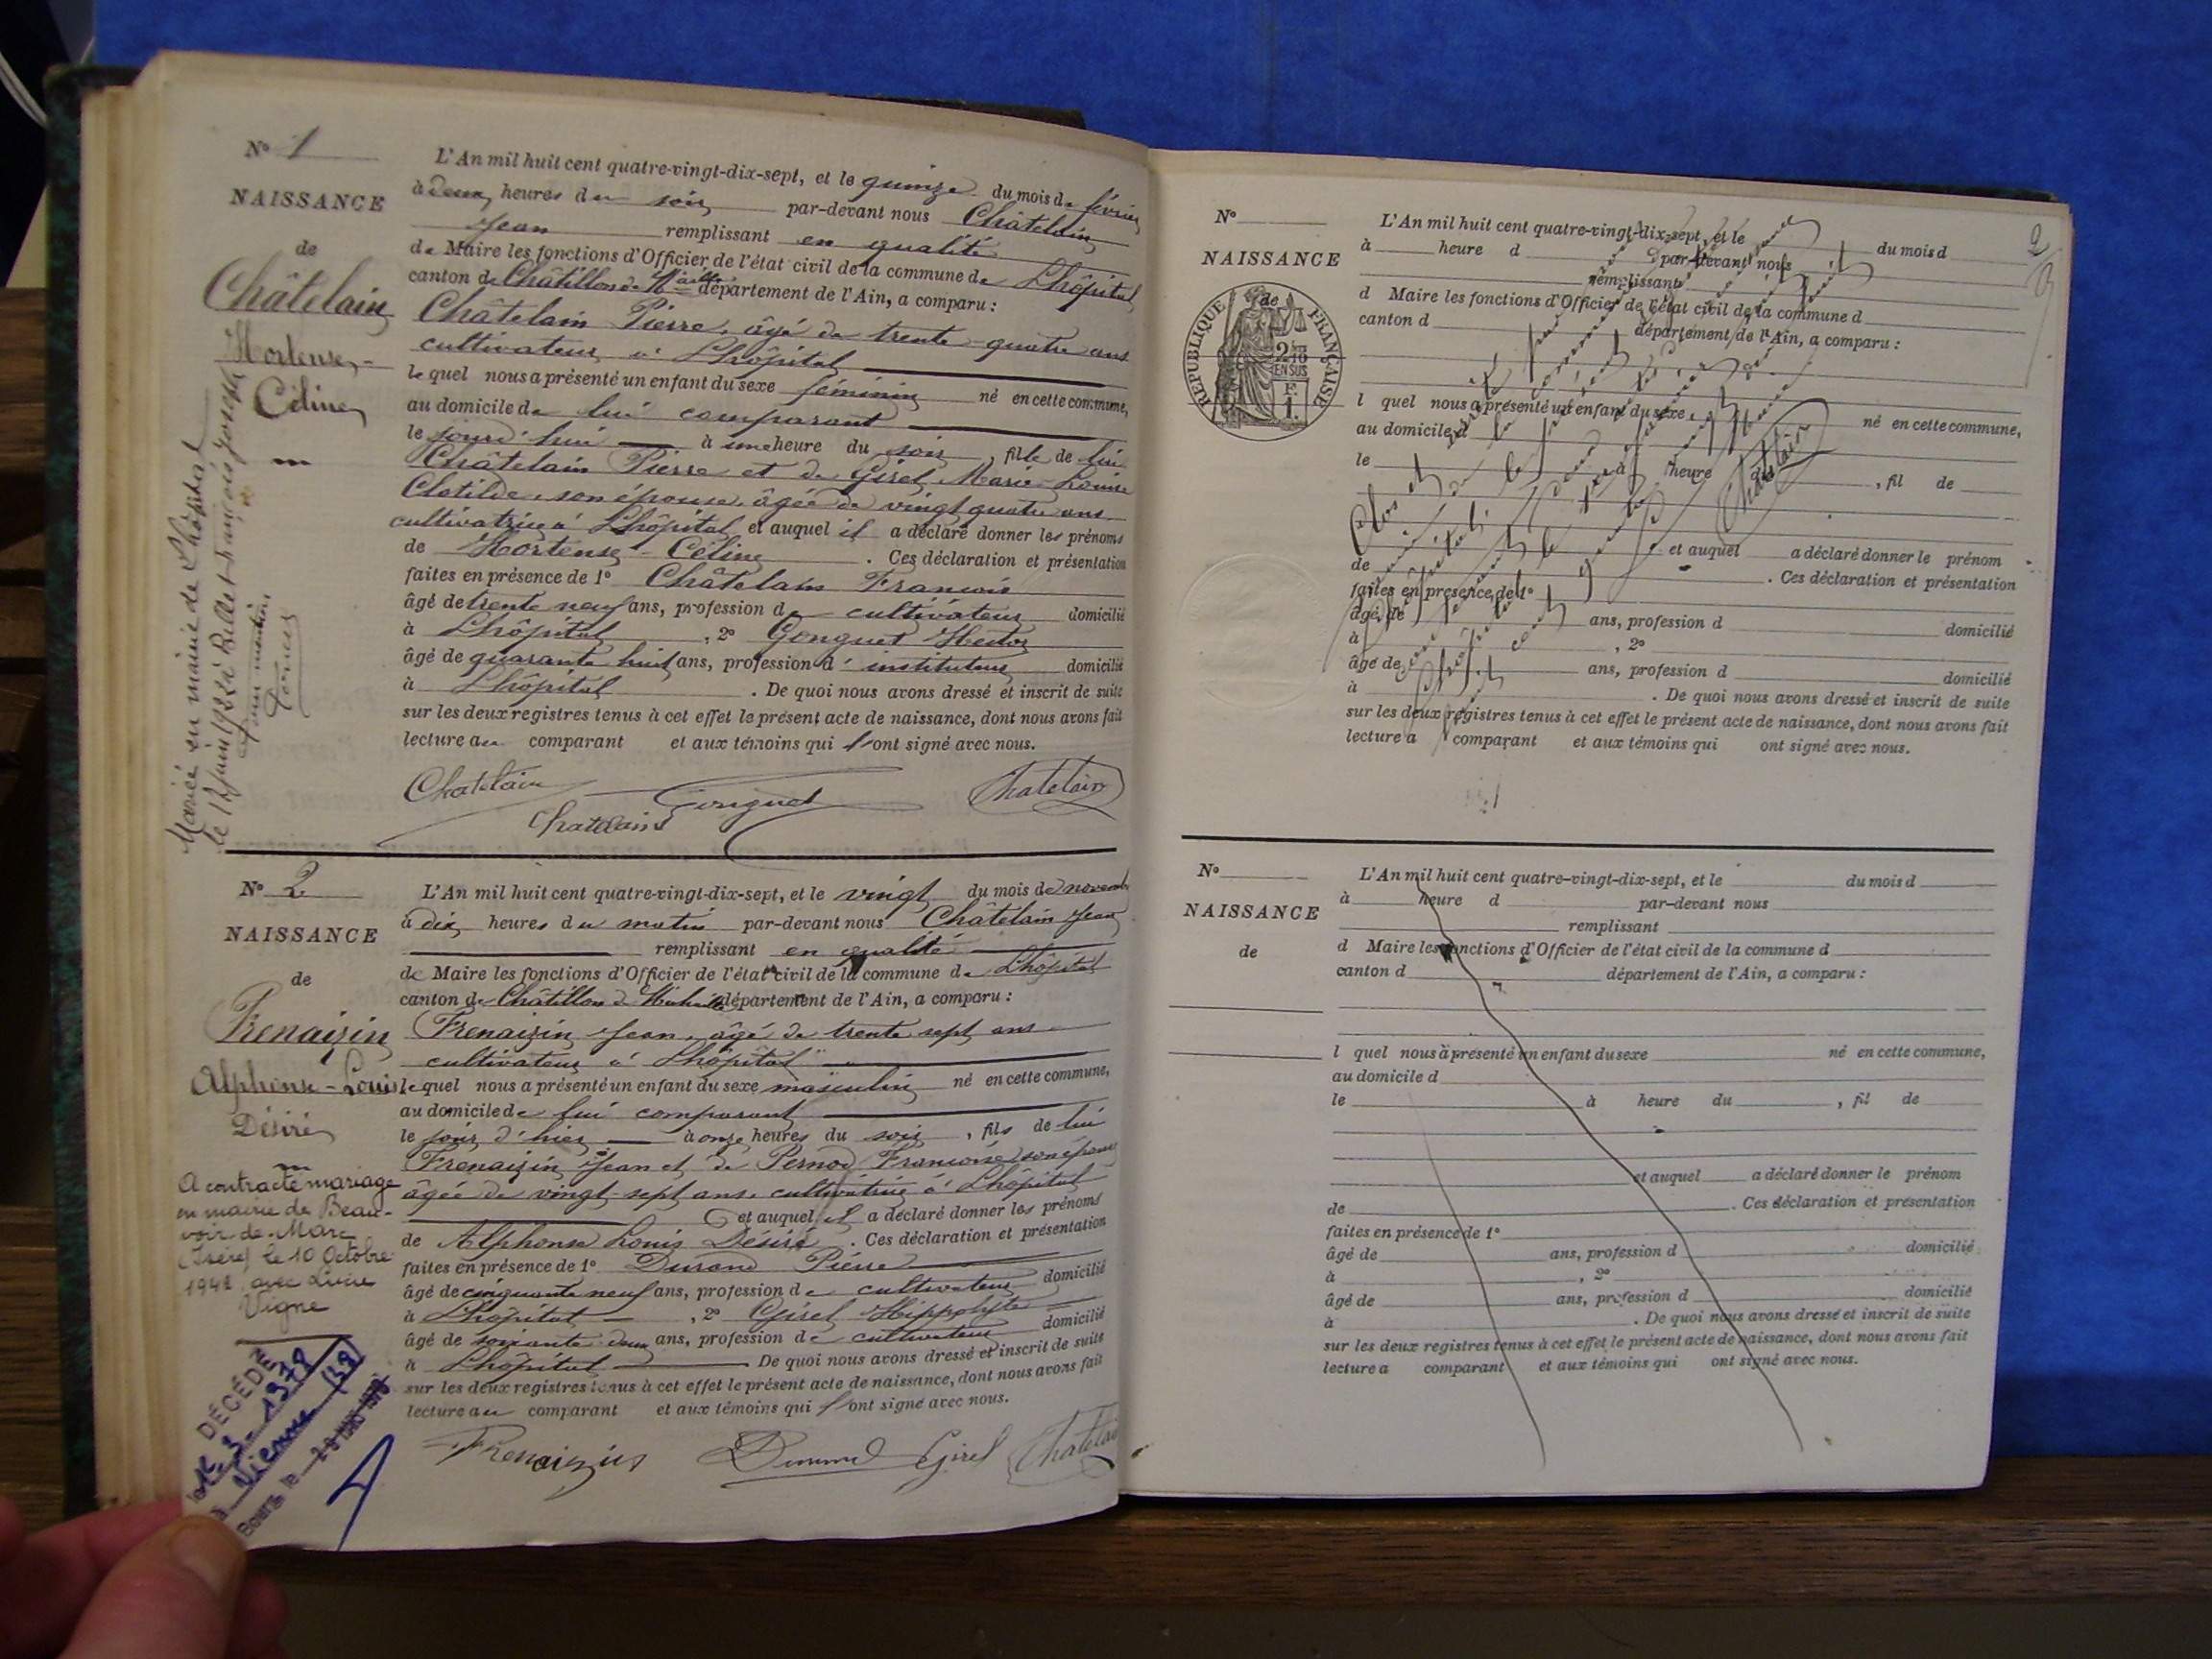 N° 1
NAISSANCE
de
Châtelain
Hortense-
Céline
Mariée en mairie de Lhôpital
le 12 juin 1922 à Billet François Joseph
L'An mil huit cent quatre-vingt-dix-sept, et le quinze du mois de février
à deux heures du soir par-devant nous Châtelain
Jean remplissant en qualité
de Maire les fonctions d'Officier de l'état civil de la commune de Lhôpital
canton de Châtillon de Mlle département de l'Ain, a comparu :
Châtelain Pierre, âgé de trente-quatre ans
cultivateur à Lhôpital
lequel nous a présenté un enfant du sexe féminin né en cette commune,
au domicile de lui comparant
le jourd'hui à une heure du soir, fille de lui
Châtelain Pierre et de Girel Marie-Louise
Clotilde, son épouse, âgée de vingt quatre ans
cultivatrice à Lhôpital et auquel il a déclaré donner les prénoms
de Hortense-Céline. Ces déclaration et présentation
faites en présence de 1° Châtelain François
âgé de trente neuf ans, profession de cultivateur domicilié
à Lhôpital, 2° Gonguet Hector
âgé de quarante huit ans, profession d'instituteur domicilié
à Lhôpital. De quoi nous avons dressé et inscrit de suite
sur les deux registres tenus à cet effet le présent acte de naissance, dont nous avons fait
lecture au comparant et aux témoins qui l'ont signé avec nous.
Chatelain Gonguet Chatelain
Chatelain
N° 2
NAISSANCE
de
Frenaizin
Alphonse-Louis
Désiré
A contracté mariage
en mairie de Beau-
voir-de-Marc
(Isère) le 10 Octobre
1942 avec Lucie
Vigne
DÉCÉDÉ
à Vienne (38)
Bourg, le
L'An mil huit cent quatre-vingt-dix-sept, et le vingt du mois de novembre
à dix heures du matin par-devant nous Châtelain Jean
remplissant en qualité
de Maire les fonctions d'Officier de l'état civil de la commune de Lhôpital
canton de Châtillon de Michaille département de l'Ain, a comparu :
Frenaizin Jean, âgé de trente sept ans
cultivateur à Lhôpital
lequel nous a présenté un enfant du sexe masculin né en cette commune,
au domicile de lui comparant
le jour d'hier à onze heures du soir, fils de lui
Frenaizin Jean et de Pernod Françoise son épouse
âgée de vingt-sept ans, cultivatrice à Lhôpital
et auquel il a déclaré donner les prénoms
de Alphonse Louis Désiré. Ces déclaration et présentation
faites en présence de 1° Durand Pierre
âgé de cinquante neuf ans, profession de cultivateur domicilié
à Lhôpital, 2° Girel Hippolyte
âgé de soixante deux ans, profession de cultivateur domicilié
à Lhôpital De quoi nous avons dressé et inscrit de suite
sur les deux registres tenus à cet effet le présent acte de naissance, dont nous avons fait
lecture au comparant et aux témoins qui l'ont signé avec nous.
Frenaizin Durand Girel Chatelain
2
N°
NAISSANCE
de
RÉPUBLIQUE FRANÇAISE
2/10 EN SUS
L'An mil huit cent quatre-vingt-dix-sept, et le du mois d
à heure d par-devant nous
remplissant
d Maire les fonctions d'Officier de l'état civil de la commune d
canton d département de l'Ain, a comparu :
l quel nous a présenté un enfant du sexe né en cette commune,
au domicile d
le à heure du, fil de
et auquel a déclaré donner le prénom
de. Ces déclaration et présentation
faites en présence de 1°
âgé de ans, profession d domicilié
à, 2°
âgé de ans, profession d domicilié
à. De quoi nous avons dressé et inscrit de suite
sur les deux registres tenus à cet effet le présent acte de naissance, dont nous avons fait
lecture a comparant et aux témoins qui ont signé avec nous.
Clos et
Chatelain
N°
NAISSANCE
de
L'An mil huit cent quatre-vingt-dix-sept, et le du mois d
à heure d par-devant nous
remplissant
d Maire les fonctions d'Officier de l'état civil de la commune d
canton d département de l'Ain, a comparu :
l quel nous a présenté un enfant du sexe né en cette commune,
au domicile d
le à heure du, fil de
et auquel a déclaré donner le prénom
de. Ces déclaration et présentation
faites en présence de 1°
âgé de ans, profession d domicilié
à, 2°
âgé de ans, profession d domicilié
à. De quoi nous avons dressé et inscrit de suite
sur les deux registres tenus à cet effet le présent acte de naissance, dont nous avons fait
lecture a comparant et aux témoins qui ont signé avec nous.